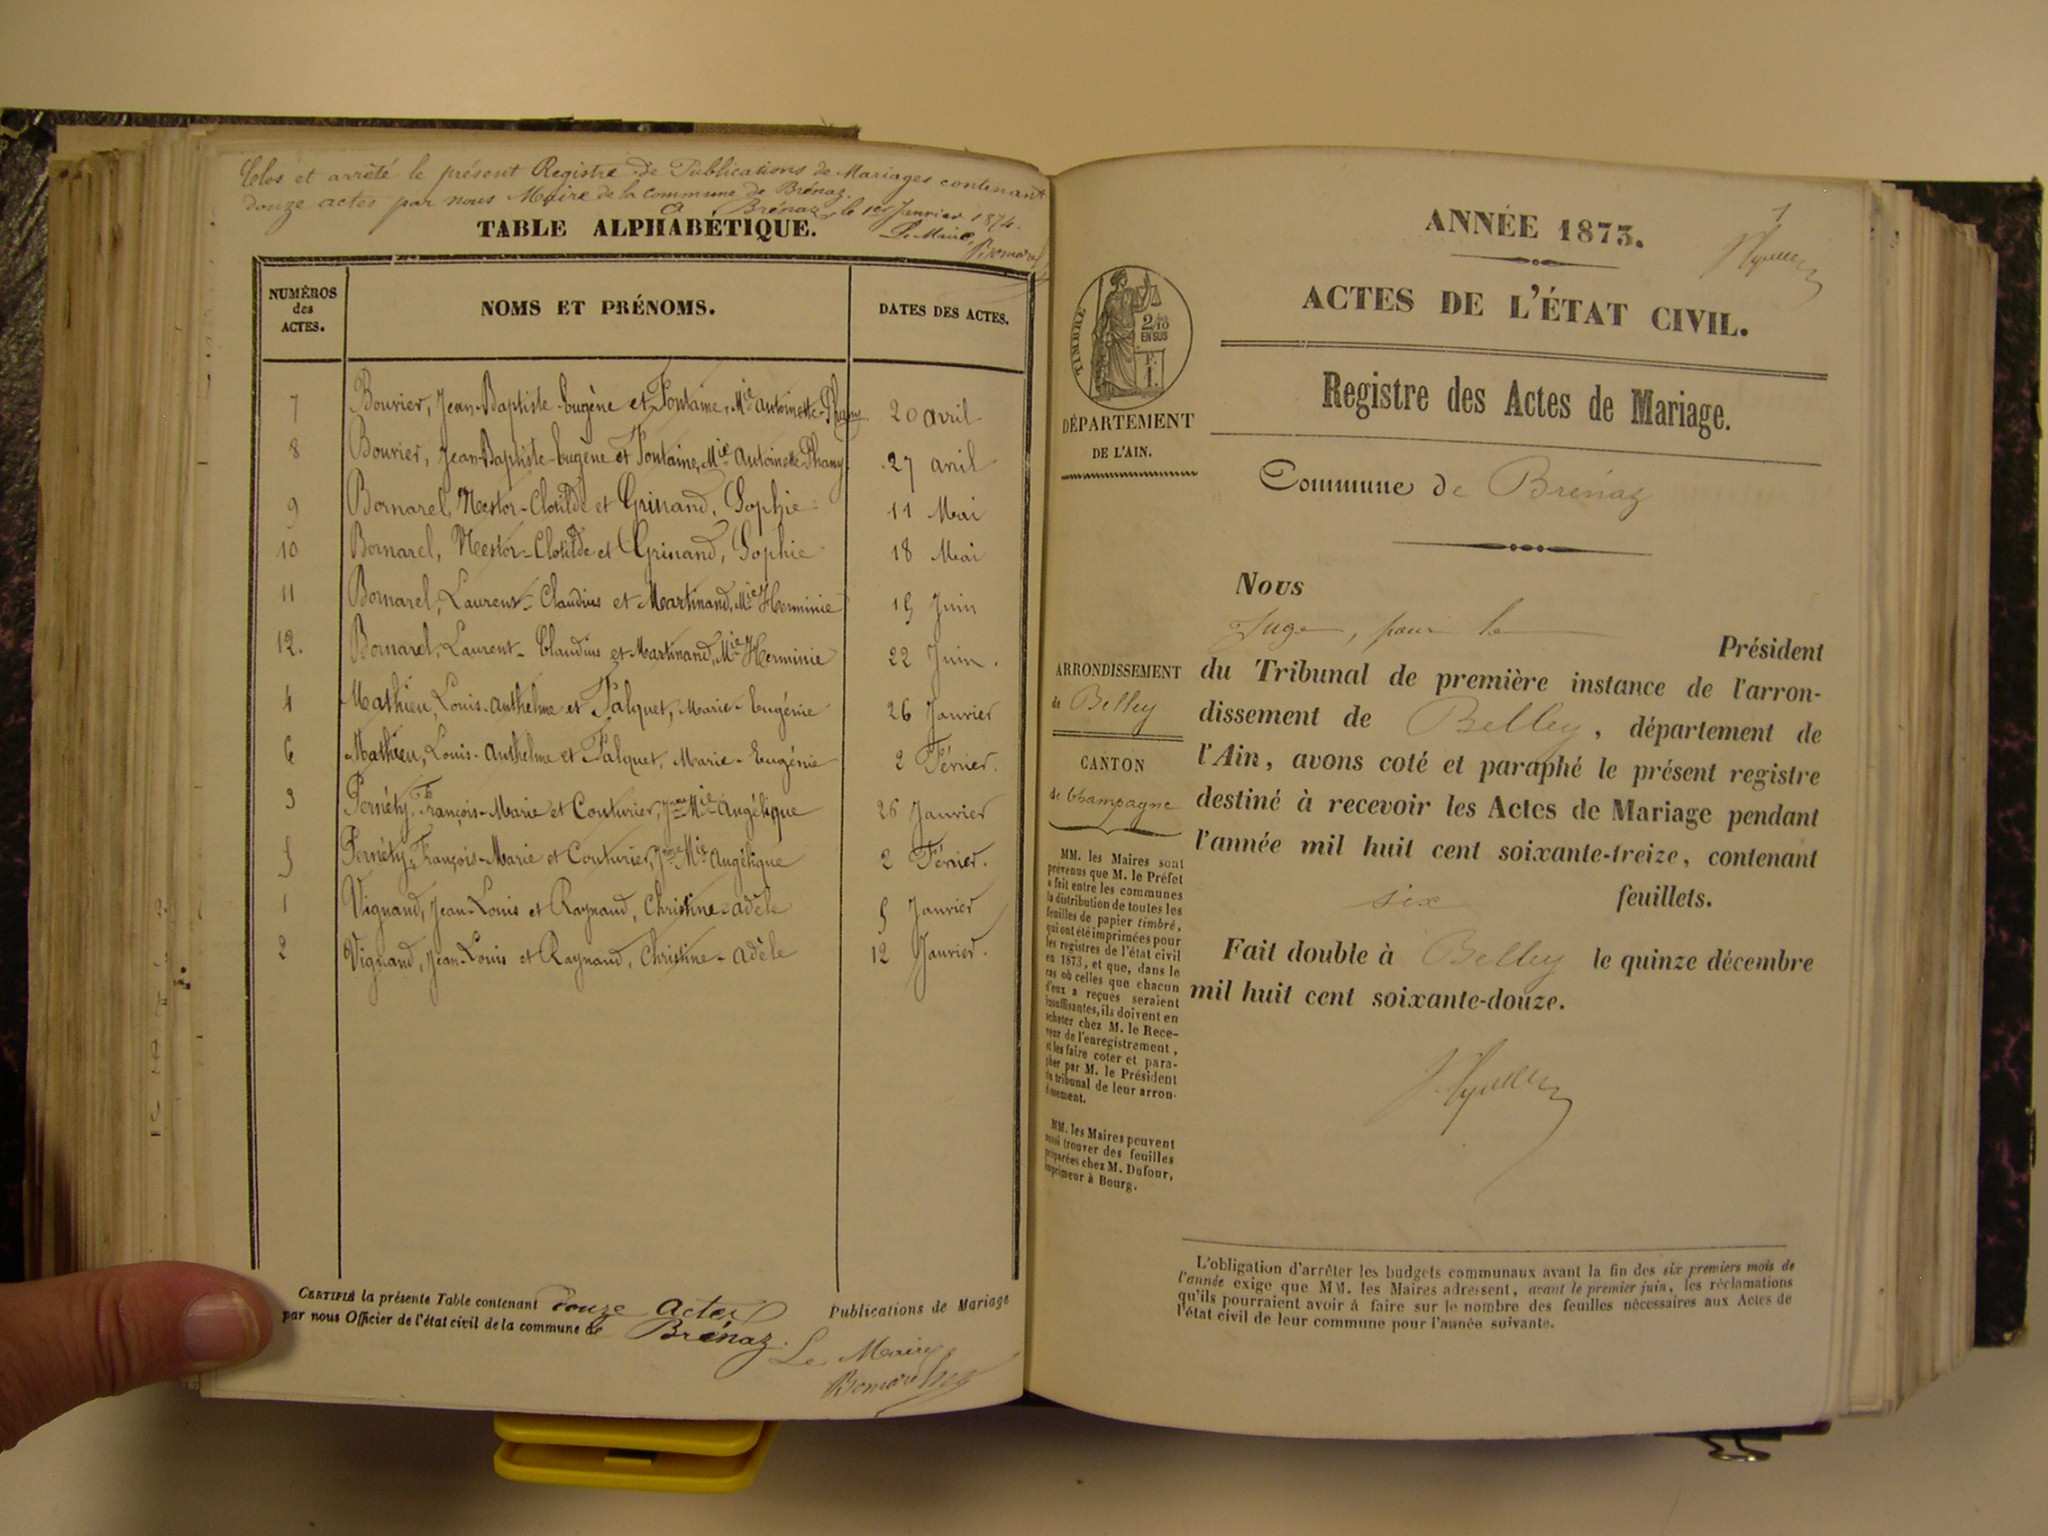 Clos et arrêté le présent Registre de Publications de Mariages contenant
douze actes par nous Maire de la commune de Brénaz.
A Brénaz, le 1er Janvier 1874.
Le Maire,
TABLE ALPHABÉTIQUE.
NUMÉROS des ACTES. NOMS ET PRÉNOMS. DATES DES ACTES.
7 Bouvier, Jean-Baptiste-Eugène et Fontaine, Mie Antoinette-Phany 20 avril
8 Bouvier, Jean-Baptiste-Eugène et Fontaine, Mie Antoinette-Phany 27 avril
9 Bornarel, Nestor-Clotilde et Grinand, Sophie 11 Mai
10 Bornarel, Nestor-Clotilde et Grinand, Sophie 18 Mai
11 Bornarel, Laurent-Claudius et Martinand, Mie Herminie 15 Juin
12. Bornarel, Laurent-Claudius et Martinand, Mie Herminie 22 Juin.
4 Mathieu, Louis-Anthelme et Falquet, Marie-Eugénie 26 Janvier
6 Mathieu, Louis-Anthelme et Falquet, Marie-Eugénie 2 Février.
3 Pernéty, François-Marie et Couturier, Jne Mie Angélique 26 Janvier
5 Pernéty, François-Marie et Couturier, Jne Mie Angélique 2 Février.
1 Vignand, Jean-Louis et Raynaud, Christine-Adèle 5 Janvier
2 Vignand, Jean-Louis et Raynaud, Christine-Adèle 12 Janvier.
CERTIFIÉ la présente Table contenant douze actes Publications de Mariage
par nous Officier de l'état civil de la commune de Brénaz.
Le Maire
ANNÉE 1873.
1
ACTES DE L'ÉTAT CIVIL.
Registre des Actes de Mariage.
TIMBRE
2/10
EN SUS
DÉPARTEMENT
DE L'AIN.
Commune de Brénaz
Nous
Juge, pour le
Président
du Tribunal de première instance de l'arron-
dissement de Belley, département de
l'Ain, avons coté et paraphé le présent registre
destiné à recevoir les Actes de Mariage pendant
l'année mil huit cent soixante-treize, contenant
six feuillets.
Fait double à Belley le quinze décembre
mil huit cent soixante-douze.
ARRONDISSEMENT
de Belley
CANTON
de Champagne
MM. les Maires sont
prévenus que M. le Préfet
a fait entre les communes
la distribution de toutes les
feuilles de papier timbré,
qui ont été imprimées pour
les registres de l'état civil
en 1873, et que, dans le
cas où celles que chacun
d'eux a reçues seraient
insuffisantes, ils doivent en
acheter chez M. le Rece-
veur de l'enregistrement,
et les faire coter et para-
pher par M. le Président
du tribunal de leur arron-
dissement.
MM. les Maires peuvent
aussi trouver des feuilles
préparées chez M. Dufour,
imprimeur à Bourg.
L'obligation d'arrêter les budgets communaux avant la fin des six premiers mois de
l'année exige que MM. les Maires adressent, avant le premier juin, les réclamations
qu'ils pourraient avoir à faire sur le nombre des feuilles nécessaires aux Actes de
l'état civil de leur commune pour l'année suivante.